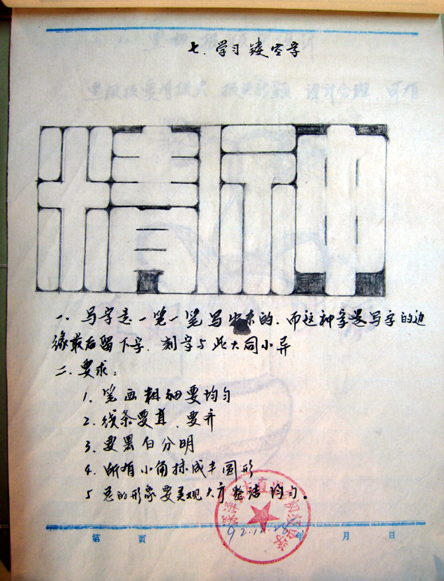 七、学习镂空字
精神
一、写字是一笔一笔写出来的,而这种字是写字的边
缘最后留下字,刻字与此大同小异
二、要求:
1、笔画粗细要均匀
2、线条要直、要齐
3、要黑白分明
4、所有小角抹成半圆形
5 总的形象要美观大方整洁均匀。
第 页 年 月 日